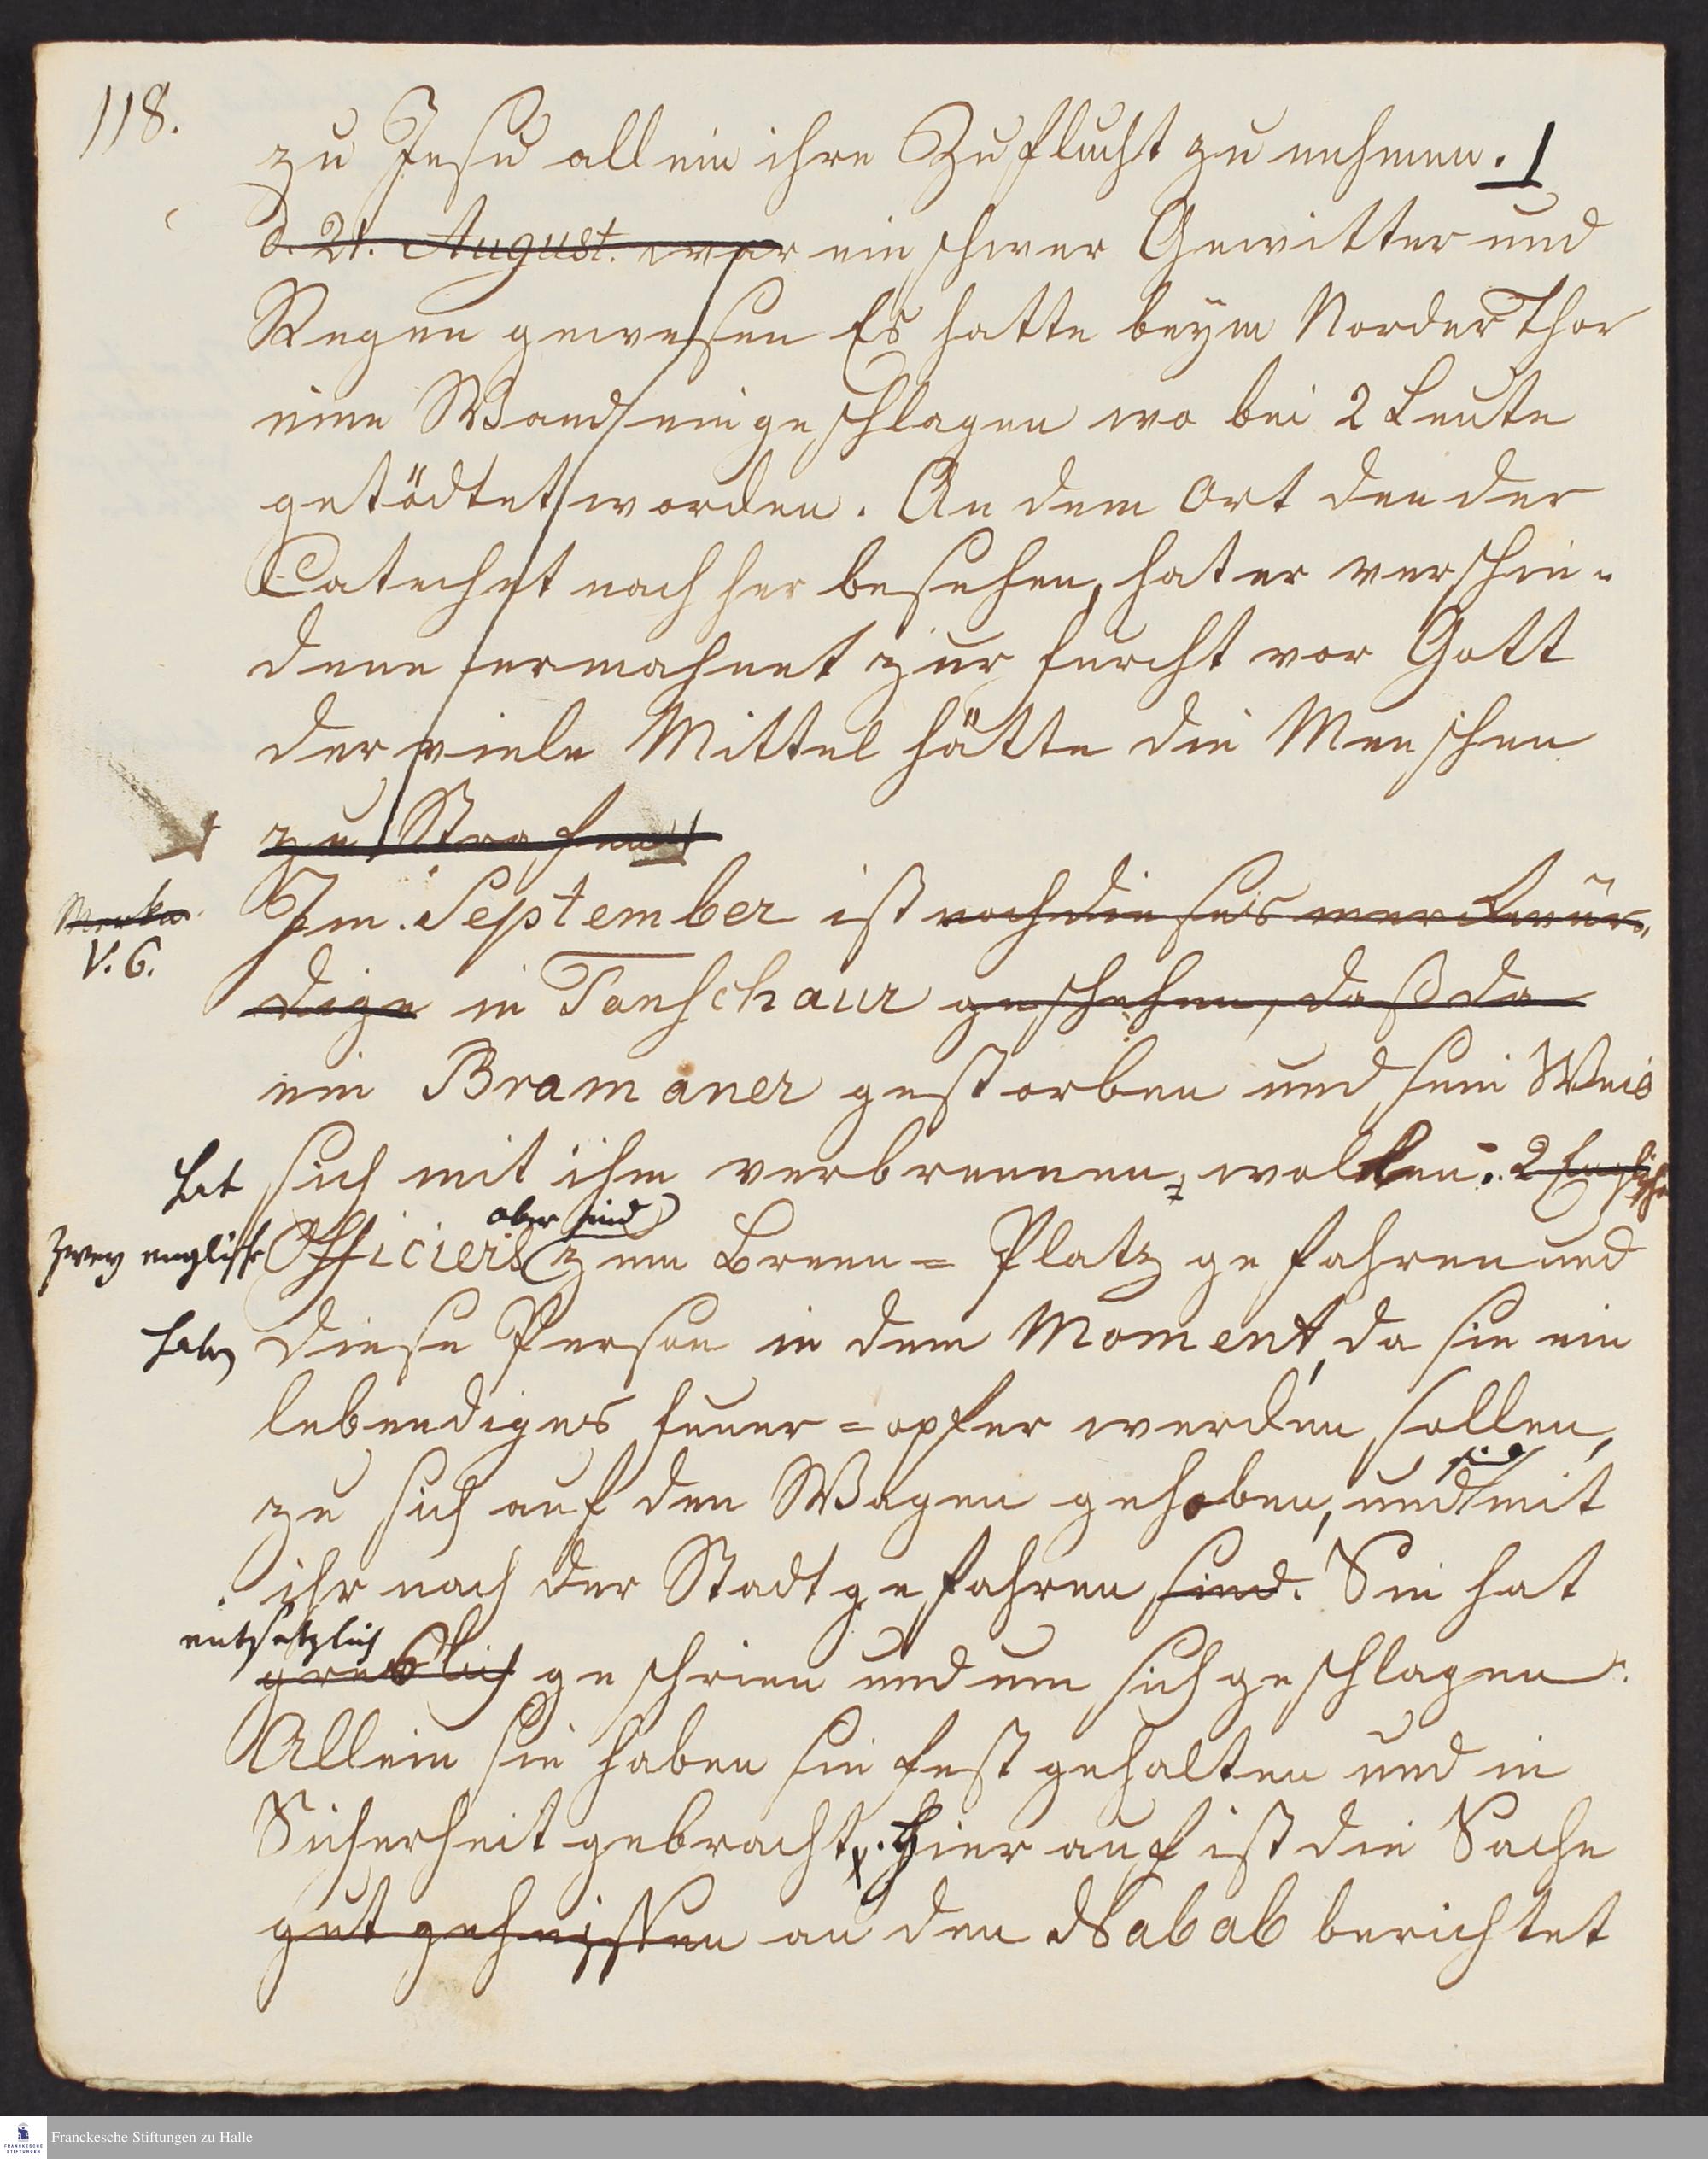 118.
zu Jesu allein ihre Zuflucht zu nehmen.
d. 21. August. war ein schwer Gewitter und
Regen gewesen Es hatte beÿm Norder Thor
eine Wand eingeschlagen wo bei 2 Leute
getödtet worden. An dem Ort den der
Catechet nach her besehen, hat er verschie-
dene ermahnet zur furcht vor Gott
der viele Mittel hätte die Menschen
zu Strafen
Im September ist noch dieses merckwür-
V. G.
dige in Tanschaur geschehen, daß da
ein Bramaner gestorben und sein Weib
hat sich mit ihm verbrennen wollen. 2 Englische
aber sind
zwey englische Officiers zum Brenn-Platz gefahren und
haben diese Person in dem Moment, da sie ein
lebendiges feuer-opfer werden sollen,
sind
zu sich auf den Wagen gehoben, und mit
ihr nach der Stadt gefahren sind. Sie hat
entsetzlich
greßlich geschrien und um sich geschlagen.
Allein sie haben sie fest gehalten und in
Sicherheit gebracht. Hier auf ist die Sache
gut geheissen an den Nabab berichtet
Franckesche Stiftungen zu Halle